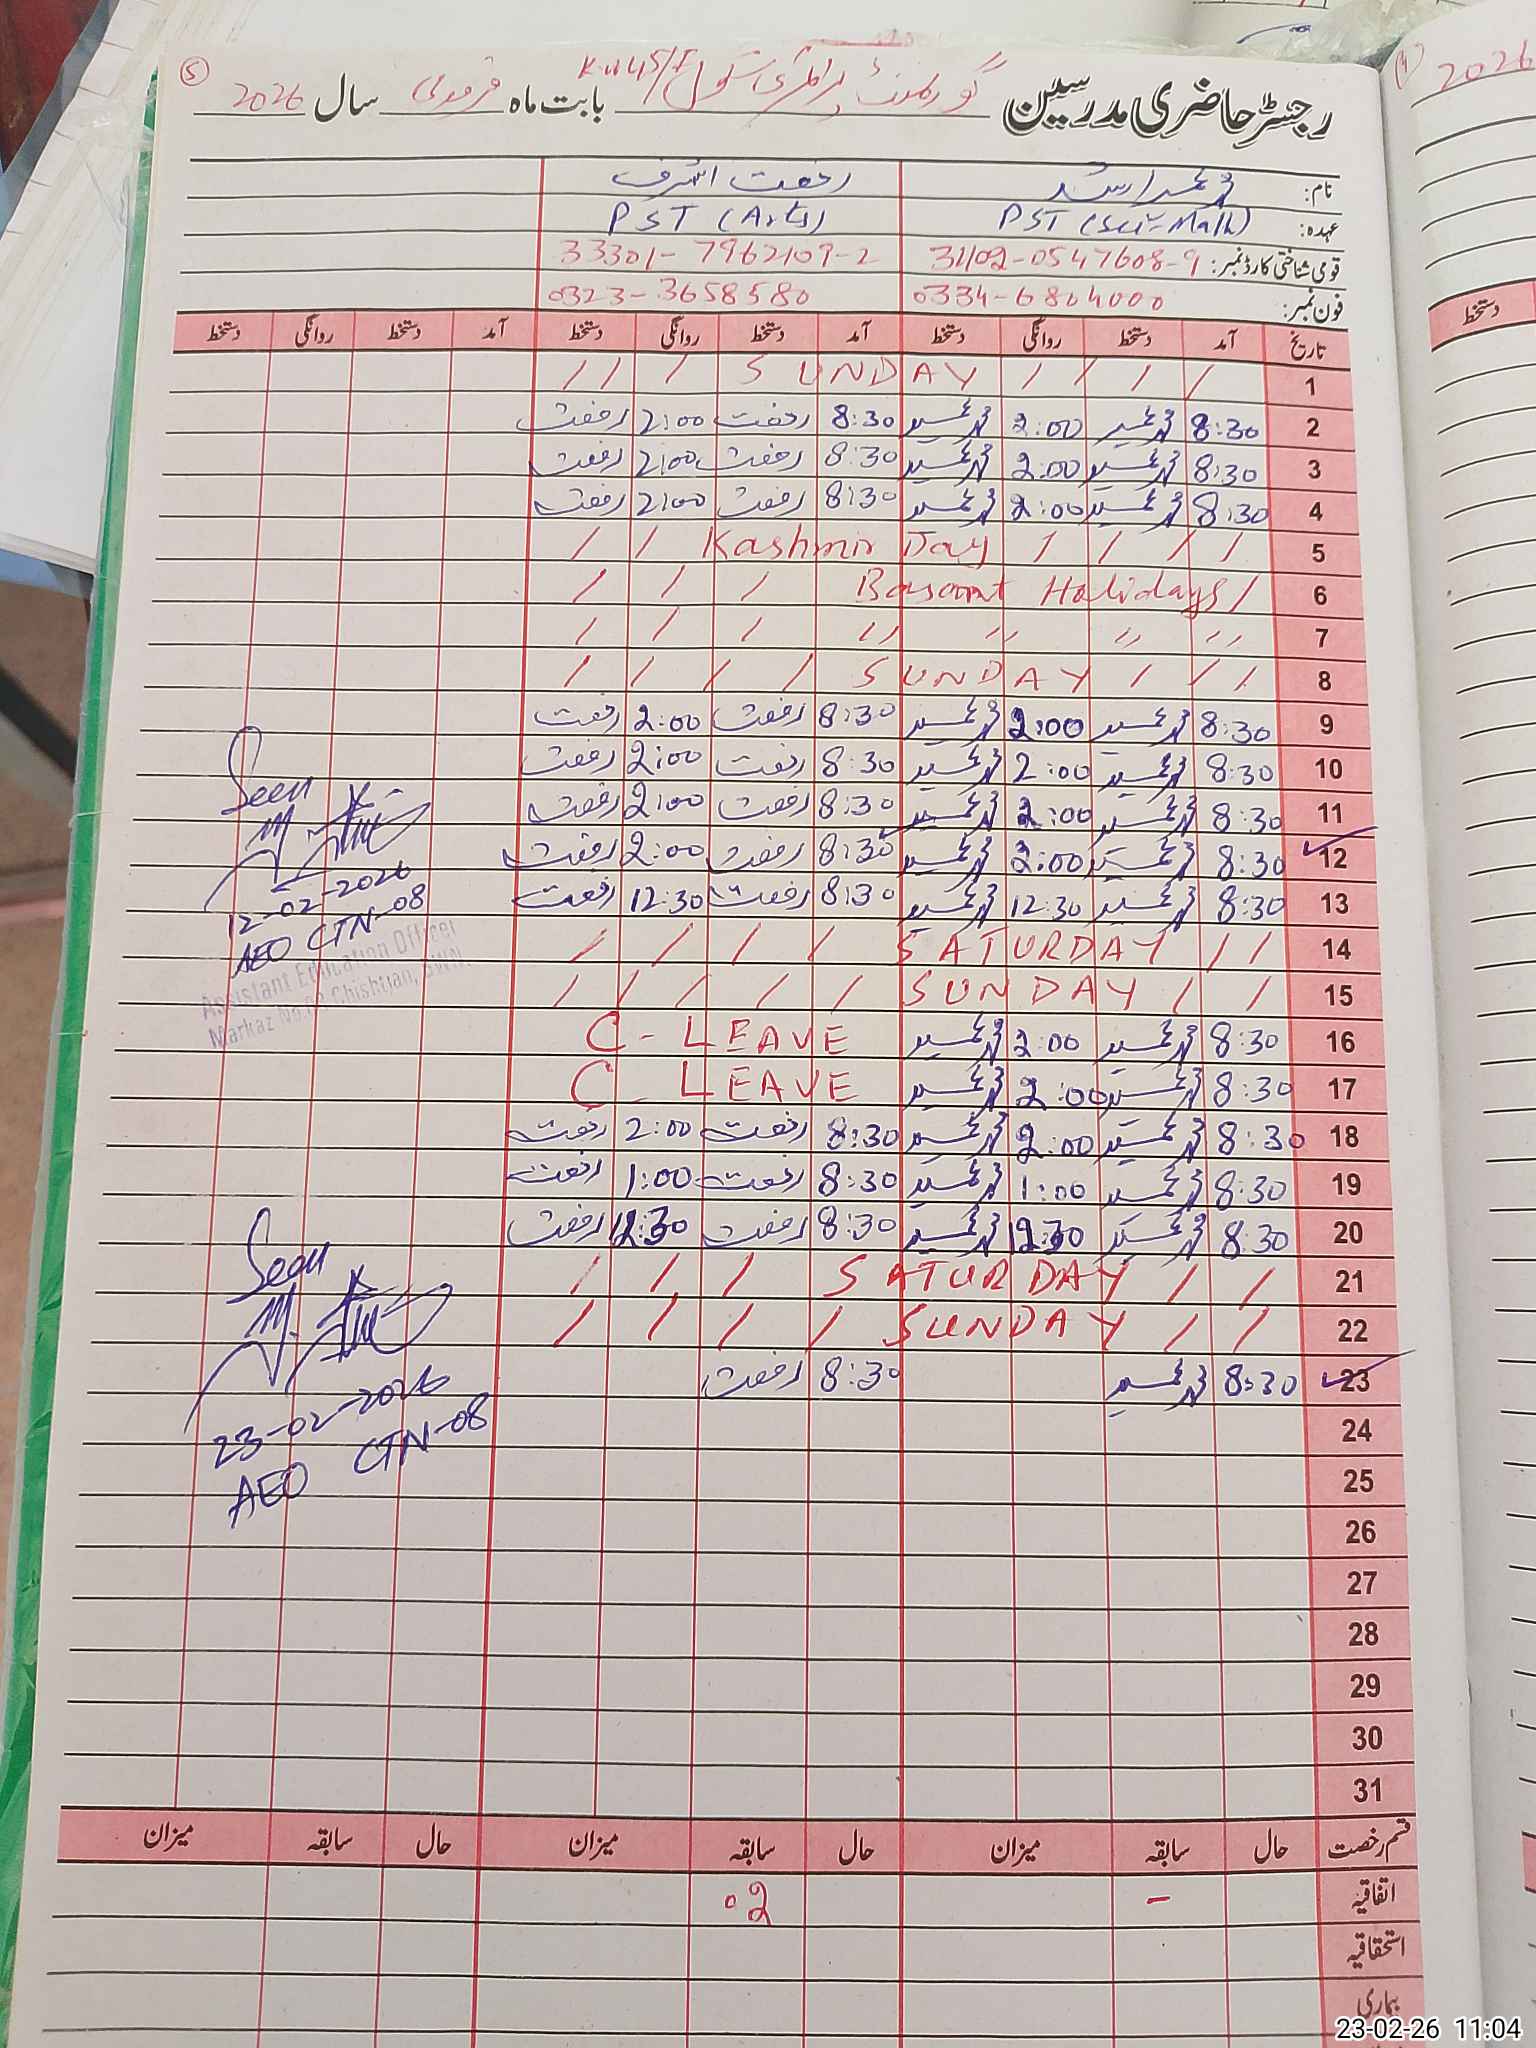 رجسٹر حاضری مدرسین گورنمنٹ پرائمری سکول بابت ماہ فروری سال 2026
5
نام: محمد ارشد رفعت اشرف
عہدہ: PST (Sci-Math) PST (Arts)
قومی شناختی کارڈ نمبر: 31102-0547608-9 33301-7962109-2
فون نمبر: 0334-6804000 0323-3658580
تاریخ آمد دستخط روانگی دستخط آمد دستخط روانگی دستخط آمد دستخط روانگی دستخط
1 SUNDAY
2 8:30 2:00 8:30 رفعت 2:00 رفعت
3 8:30 2:00 8:30 رفعت 2:00 رفعت
4 8:30 2:00 8:30 رفعت 2:00 رفعت
5 Kashmir Day
6 Basant Holidays
7 " " " "
8 SUNDAY
9 8:30 2:00 8:30 رفعت 2:00 رفعت
10 8:30 2:00 8:30 رفعت 2:00 رفعت
11 8:30 2:00 8:30 رفعت 2:00 رفعت
12 8:30 2:00 8:30 رفعت 2:00 رفعت
13 8:30 12:30 8:30 رفعت 12:30 رفعت
14 SATURDAY
15 SUNDAY
16 8:30 2:00 C-LEAVE
17 8:30 2:00 C-LEAVE
18 8:30 2:00 8:30 رفعت 2:00 رفعت
19 8:30 1:00 8:30 رفعت 1:00 رفعت
20 8:30 12:30 8:30 رفعت 12:30 رفعت
21 SATURDAY
22 SUNDAY
23 8:30 8:30 رفعت
24
25
26
27
28
29
30
31
Seen
12-02-2026
AEO CTN-08
Assistant Education Officer
Markaz No.08 Chishtian, BWN.
Seen
23-02-2026
AEO CTN-08
قسم رخصت حال سابقہ میزان حال سابقہ میزان حال سابقہ میزان
اتفاقیہ - 02
استحقاقیہ
بیماری
2026
دستخط
23-02-26 11:04